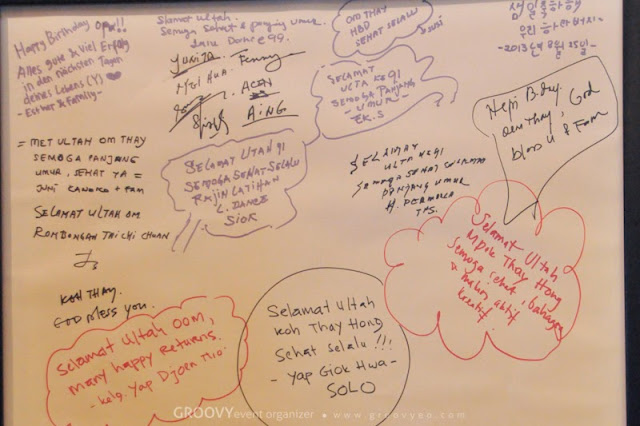 Happy Birthday
Alles gute & viel Erfolg
in den nächsten Tagen
deines Lebens (Y) ♥
- Esther & Family -
Selamat Ultah.
Semoga Sehat & panjang umur
YUNITA
MEI HUA.
ACEN
AING
OM THAY
HBD
SEHAT SELALU
SUSI
생일 축하해
우리 할아버지
-2013년 8월 25일-
SELAMAT
ULTA KE 91
SEMOGA PANJANG
- UMUR -
EK. S
Hepi B.day
oem Thay, God
bless u & Fam
= MET ULTAH OM THAY
SEMOGA PANJANG
UMUR, SEHAT YA =
+ FAM
SELAMAT ULTAH OM
ROMBONGAN TAI CHI CHUAN
SELAMAT UTAH 91
SEMOGA SEHAT-SELALU
RAJIN LATIHAN
L. DANCE
SIOK
SELAMAT
ULTA KE 91
Semoga SEHAT
PANJANG UMUR
H. PERMATA
TPS.
Selamat Ultah
Mpek Thay Hong
Semoga sehat, bahagia
& makin aktif
kreatif.
KOH THAY.
GOD bless you.
Selamat Ultah OOM,
many happy Returns.
- kelg. Yap Djoen Mio.
Selamat Ultah
Koh Thay Hong
Sehat selalu !!!
- Yap Giok Hwa -
SOLO
GROOVY event organizer • www.groovyeo.com